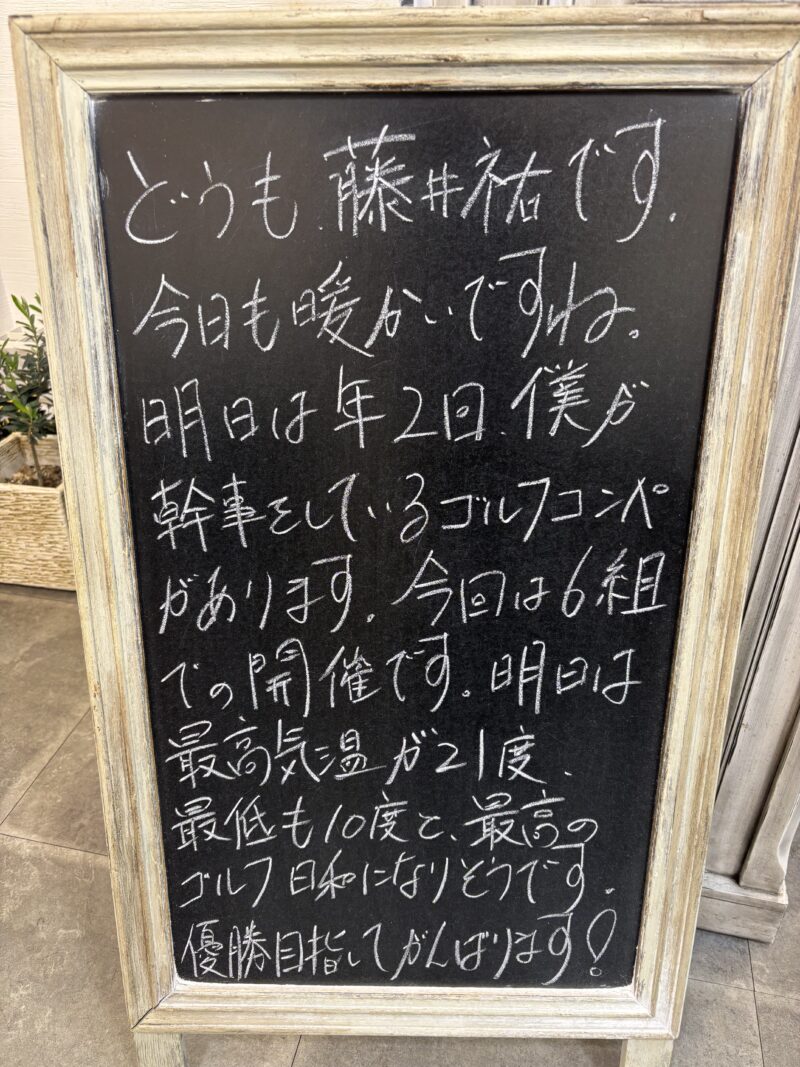 どうも、藤井祐です。
今日も暖かいですね。
明日は年2回、僕が
幹事をしているゴルフコンペ
があります。今回は6組
での開催です。明日は
最高気温が21度、
最低も10度と、最高の
ゴルフ日和になりそうです。
優勝目指してがんばります!